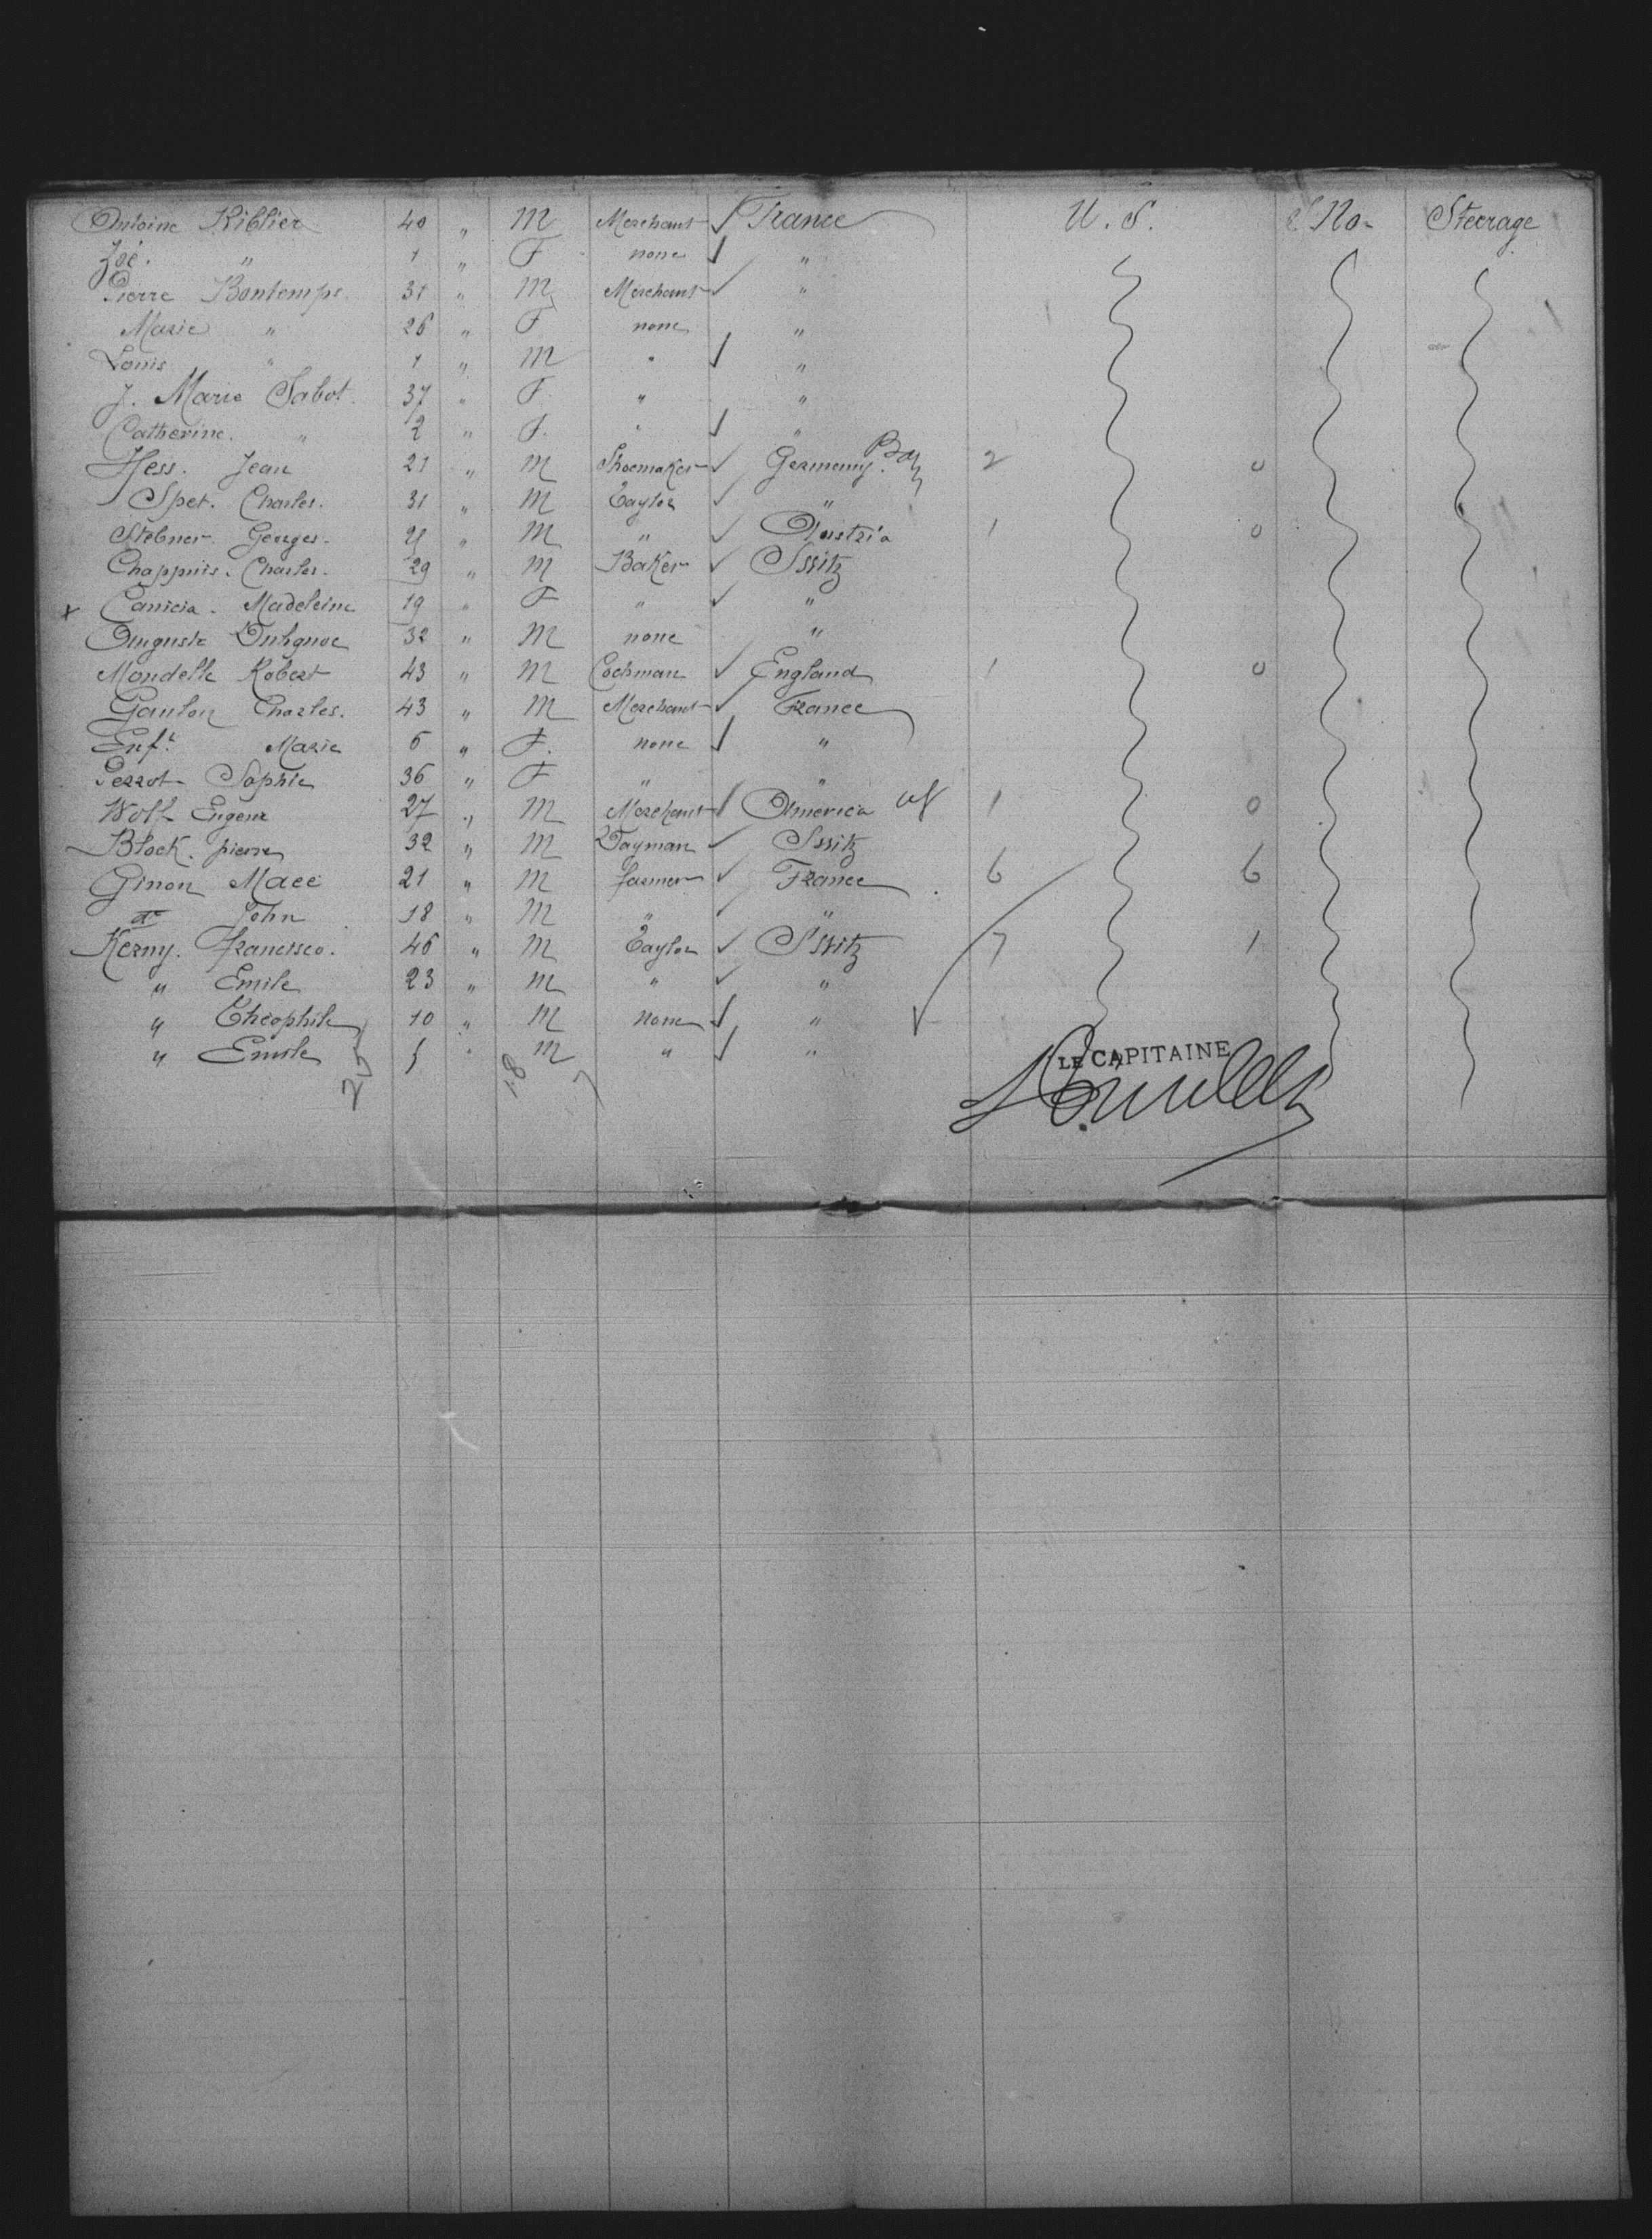 Antoine Riblier 40 " M Merchant France U.S. No. Steerage
Zoé " 1 " F none "
Pierre Bontemps 31 " M Merchant "
Marie " 26 " F none "
Louis " 1 " M " "
J. Marie Sabot 37 " F " "
Catherine. " 2 " F. " "
Hess. Jean 21 " M Shoemaker Germany. 2 0
Spet. Charles. 31 " M Taylor "
Stebner Georges. 21 " M " Austria 1 0
Chappuis. Charles. 29 " M Baker Ssitz
x Canicia. Madeleine 19 " F " "
Auguste 32 " M none "
Mondelle Robert 43 " M Cochman England 1 0
Gaulon Charles. 43 " M Merchant France
Enft. Marie 6 " F. none "
Perrot Sophie 36 " F " "
Wolf Eugene 27 " M Merchant America 1 0
Block. pierre 32 " M Dayman Ssitz
Ginon Macé 21 " M farmer France 6 6
do John 18 " M " "
Kerny. francisco. 46 " M Taylor Ssitz 7 1
" Emile 23 " M " "
" Théophile 10 " M None "
" Emile 5 " M " "
25 18 7
LE CAPITAINE